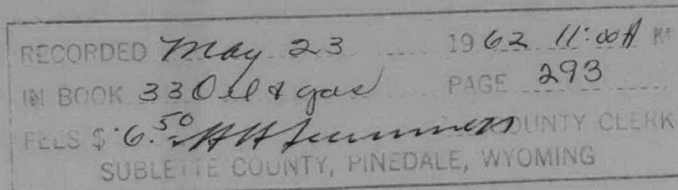 RECORDED May 23 1962 11:00A M
IN BOOK 33 Oil & gas PAGE 293
FEES $ 6.50 COUNTY CLERK
SUBLETTE COUNTY, PINEDALE, WYOMING